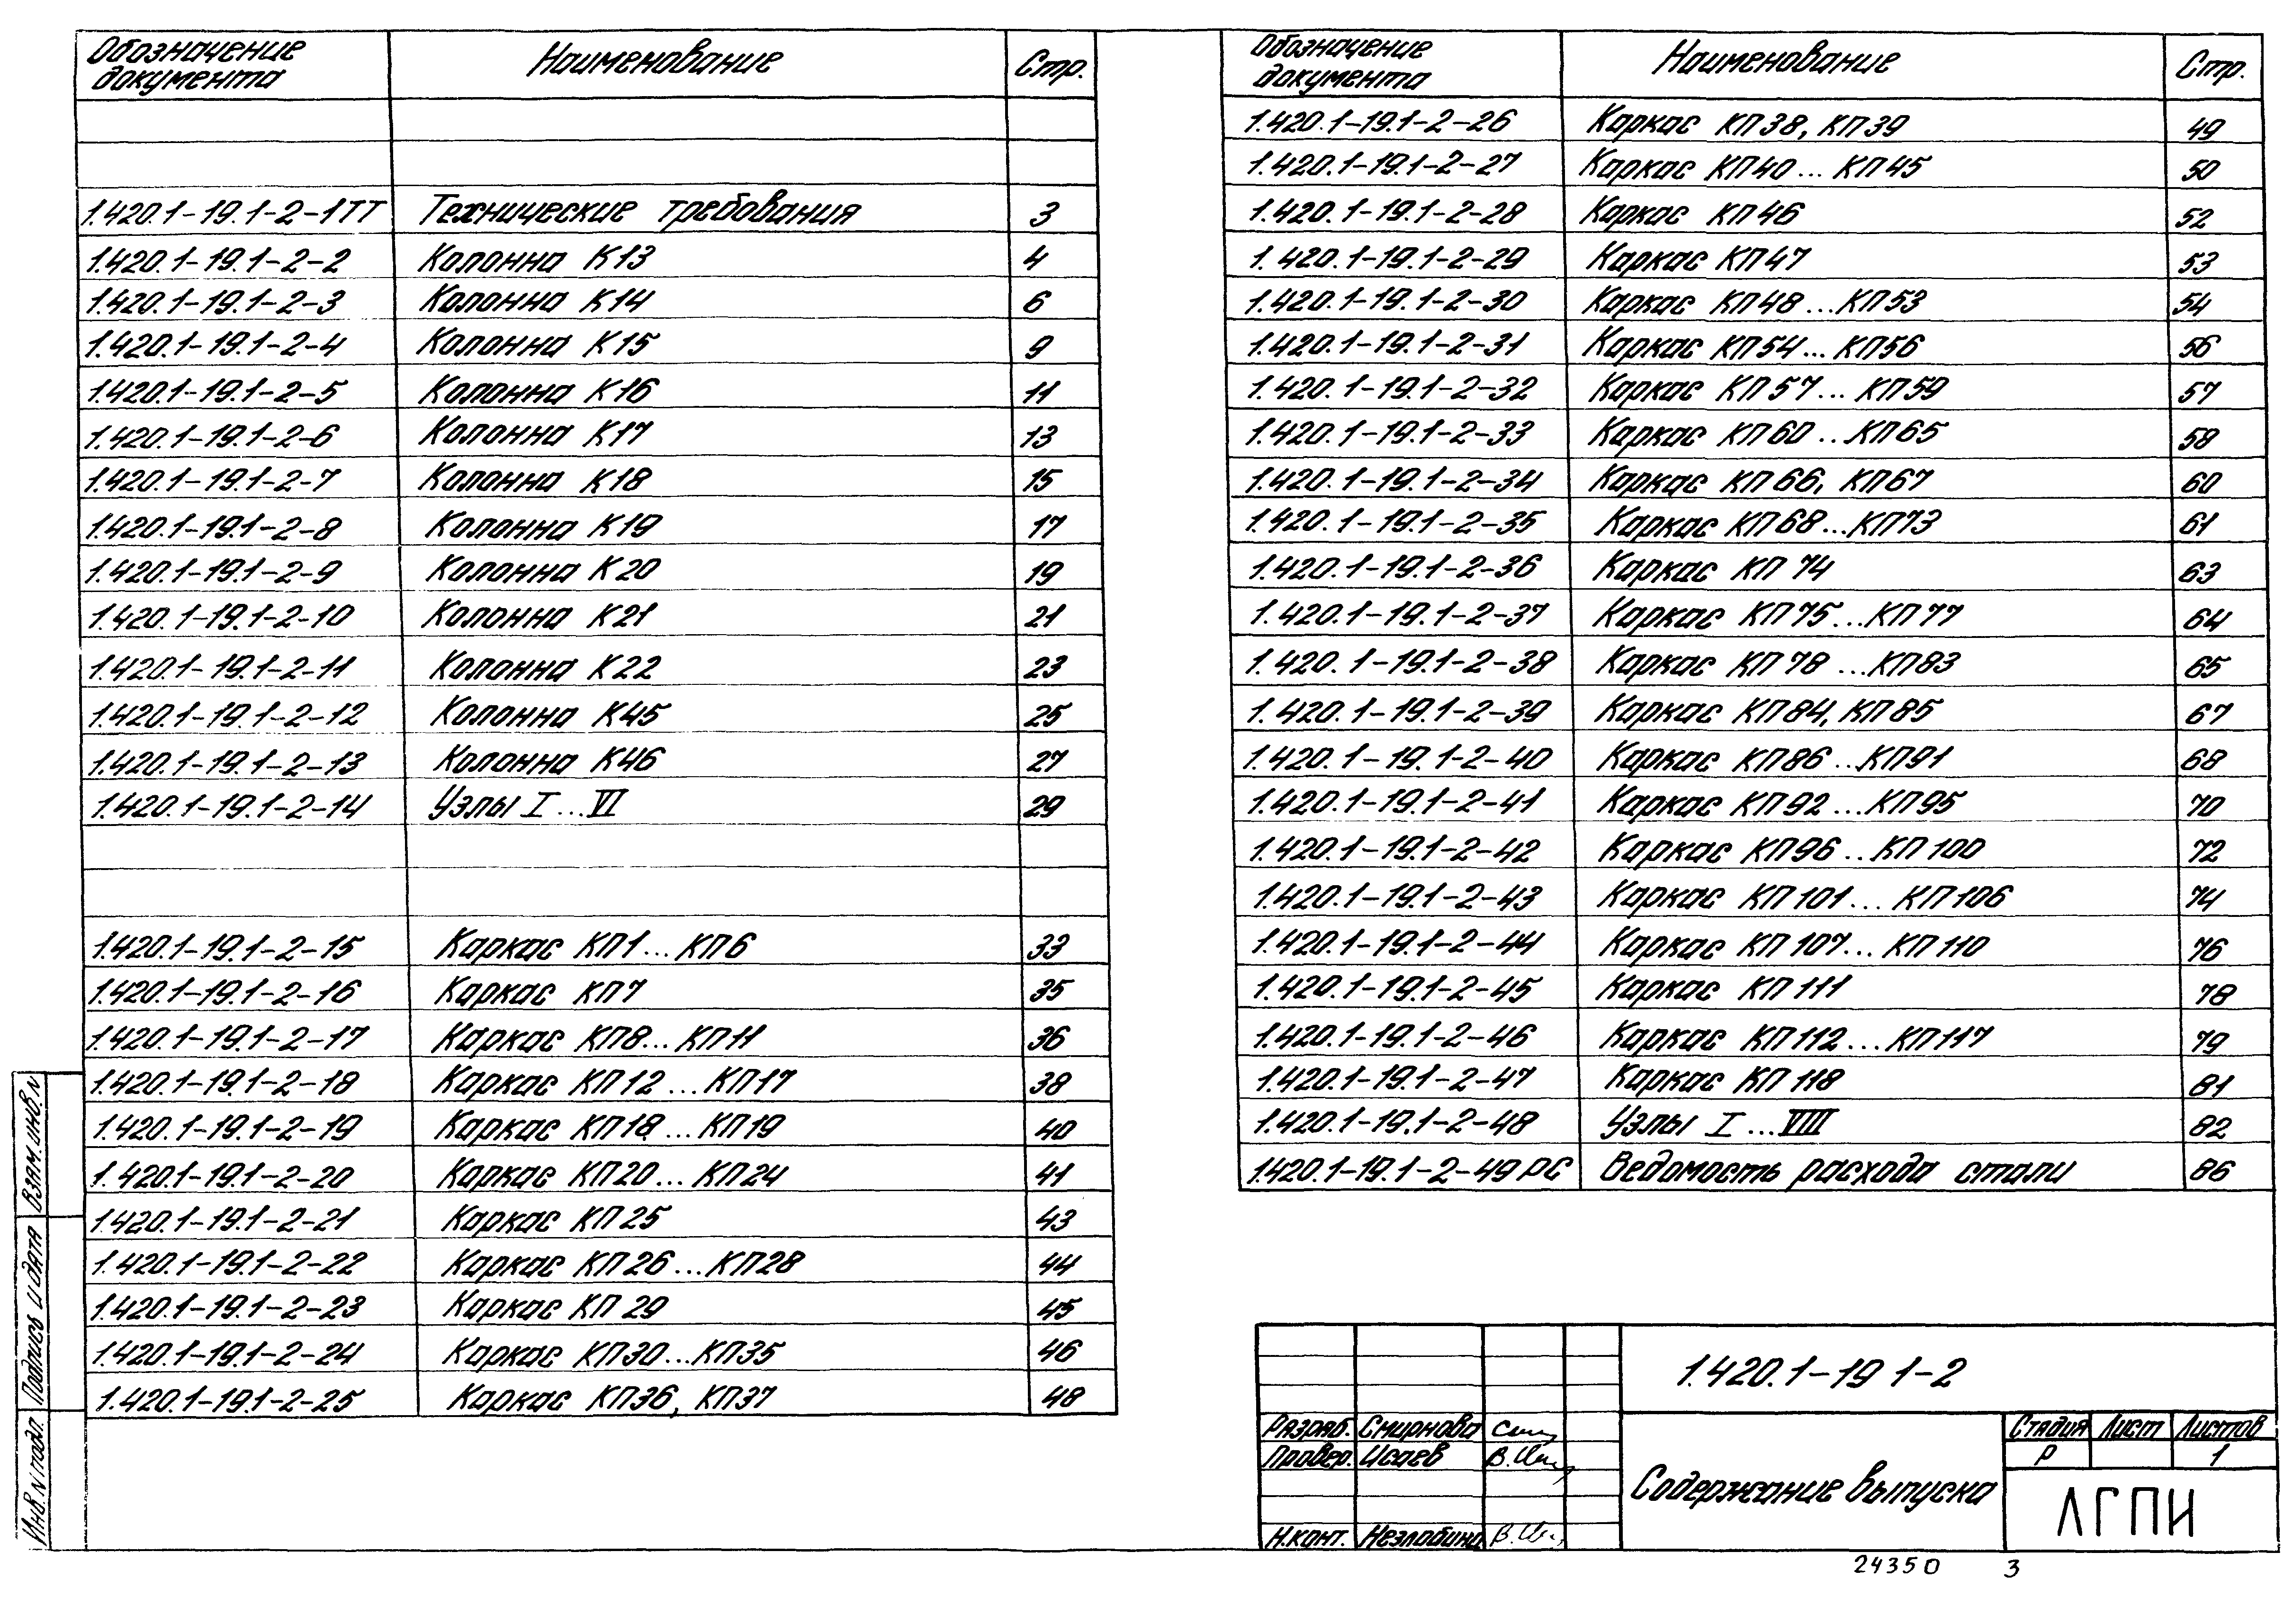 Обозначение документа Наименование Стр.
1.420.1-19.1-2-1ТТ Технические требования 3
1.420.1-19.1-2-2 Колонна К13 4
1.420.1-19.1-2-3 Колонна К14 6
1.420.1-19.1-2-4 Колонна К15 9
1.420.1-19.1-2-5 Колонна К16 11
1.420.1-19.1-2-6 Колонна К17 13
1.420.1-19.1-2-7 Колонна К18 15
1.420.1-19.1-2-8 Колонна К19 17
1.420.1-19.1-2-9 Колонна К20 19
1.420.1-19.1-2-10 Колонна К21 21
1.420.1-19.1-2-11 Колонна К22 23
1.420.1-19.1-2-12 Колонна К45 25
1.420.1-19.1-2-13 Колонна К46 27
1.420.1-19.1-2-14 Узлы I...VI 29
1.420.1-19.1-2-15 Каркас КП1...КП6 33
1.420.1-19.1-2-16 Каркас КП7 35
1.420.1-19.1-2-17 Каркас КП8...КП11 36
1.420.1-19.1-2-18 Каркас КП12...КП17 38
1.420.1-19.1-2-19 Каркас КП18...КП19 40
1.420.1-19.1-2-20 Каркас КП20...КП24 41
1.420.1-19.1-2-21 Каркас КП25 43
1.420.1-19.1-2-22 Каркас КП26...КП28 44
1.420.1-19.1-2-23 Каркас КП29 45
1.420.1-19.1-2-24 Каркас КП30...КП35 46
1.420.1-19.1-2-25 Каркас КП36, КП37 48
Обозначение документа Наименование Стр.
1.420.1-19.1-2-26 Каркас КП38, КП39 49
1.420.1-19.1-2-27 Каркас КП40...КП45 50
1.420.1-19.1-2-28 Каркас КП46 52
1.420.1-19.1-2-29 Каркас КП47 53
1.420.1-19.1-2-30 Каркас КП48...КП53 54
1.420.1-19.1-2-31 Каркас КП54...КП56 56
1.420.1-19.1-2-32 Каркас КП57...КП59 57
1.420.1-19.1-2-33 Каркас КП60..КП65 58
1.420.1-19.1-2-34 Каркас КП66, КП67 60
1.420.1-19.1-2-35 Каркас КП68...КП73 61
1.420.1-19.1-2-36 Каркас КП74 63
1.420.1-19.1-2-37 Каркас КП75...КП77 64
1.420.1-19.1-2-38 Каркас КП78...КП83 65
1.420.1-19.1-2-39 Каркас КП84, КП85 67
1.420.1-19.1-2-40 Каркас КП86...КП91 68
1.420.1-19.1-2-41 Каркас КП92...КП95 70
1.420.1-19.1-2-42 Каркас КП96..КП100 72
1.420.1-19.1-2-43 Каркас КП101...КП106 74
1.420.1-19.1-2-44 Каркас КП107...КП110 76
1.420.1-19.1-2-45 Каркас КП111 78
1.420.1-19.1-2-46 Каркас КП112...КП117 79
1.420.1-19.1-2-47 Каркас КП118 81
1.420.1-19.1-2-48 Узлы I...VIII 82
1.420.1-19.1-2-49РС Ведомость расхода стали 86
Инв.N подл. Подпись и дата Взям.инв.N
1.420.1-19 1-2
Разраб. Смирнова
Провер. Исаев
Н.конт. Незлобина
Содержание выпуска
Стадия Лист Листов
Р 1
ЛГПИ
24350 3